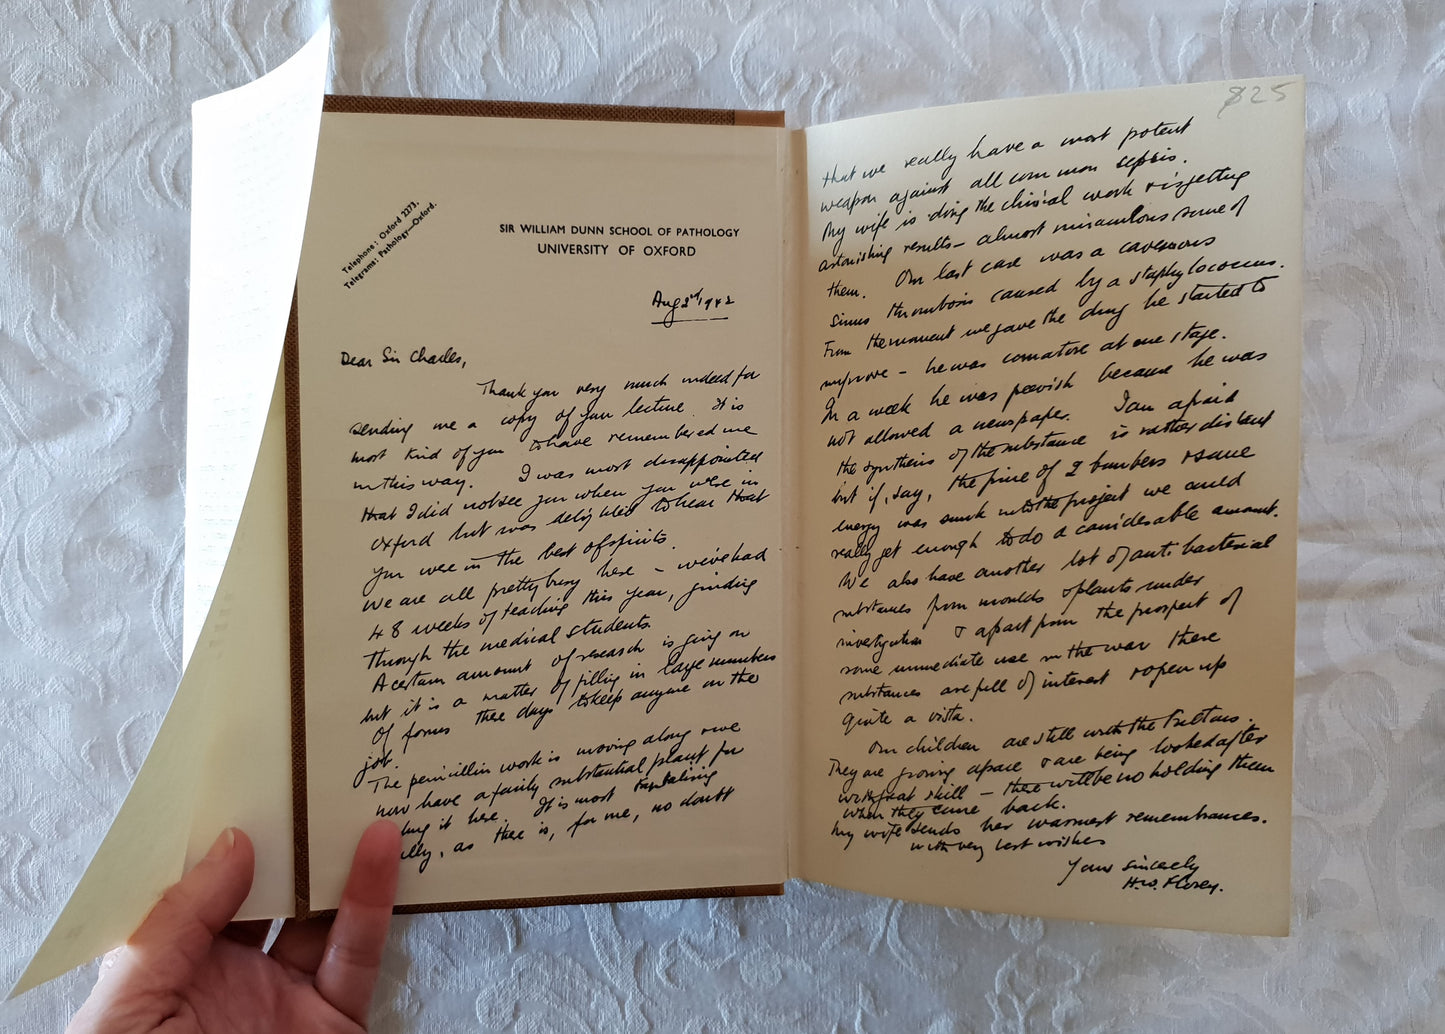 Telephone: Oxford 2273.
Telegrams: Pathology—Oxford.
SIR WILLIAM DUNN SCHOOL OF PATHOLOGY
UNIVERSITY OF OXFORD
Aug 2nd 1942
Dear Sir Charles,
Thank you very much indeed for
sending me a copy of your lecture. It is
most kind of you to have remembered me
in this way. I was most disappointed
that I did not see you when you were in
Oxford but was delighted to hear that
you were in the best of spirits.
We are all pretty busy here – we've had
48 weeks of teaching this year, grinding
through the medical students.
A certain amount of research is going on
but it is a matter of filling in large numbers
of forms these days to keep anyone on the
job.
The penicillin work is moving along & we
now have a fairly substantial plant for
it here. It is most tantalising
as there is, for me, no doubt
$25
that we really have a most potent
weapon against all common sepsis.
My wife is doing the clinical work & is getting
astonishing results – almost miraculous some of
them. Our last case was a cavernous
sinus thrombosis caused by a staphylococcus.
From the moment we gave the drug he started to
improve – he was comatose at one stage.
In a week he was peevish because he was
not allowed a newspaper. I am afraid
the synthesis of the substance is rather distant
but if, say, the price of 2 bombers & some
energy was sunk into the project we could
really get enough to do a considerable amount.
We also have another lot of anti bacterial
substances from moulds & plants under
investigation & apart from the prospect of
some immediate use in the war these
substances are full of interest & open up
quite a vista.
Our children are still with the Fultons.
They are growing apace & are being looked after
with great skill – there will be no holding them
when they come back.
My wife sends her warmest remembrances.
with very best wishes
Yours sincerely
H.W. Florey.